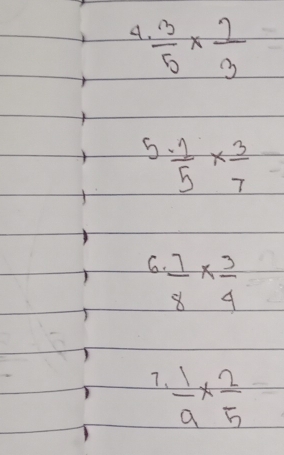 4. 3/5 × 2/3
5. 2/5 × 3/7
6. 7/8 × 3/4
7. 1/9 × 2/5